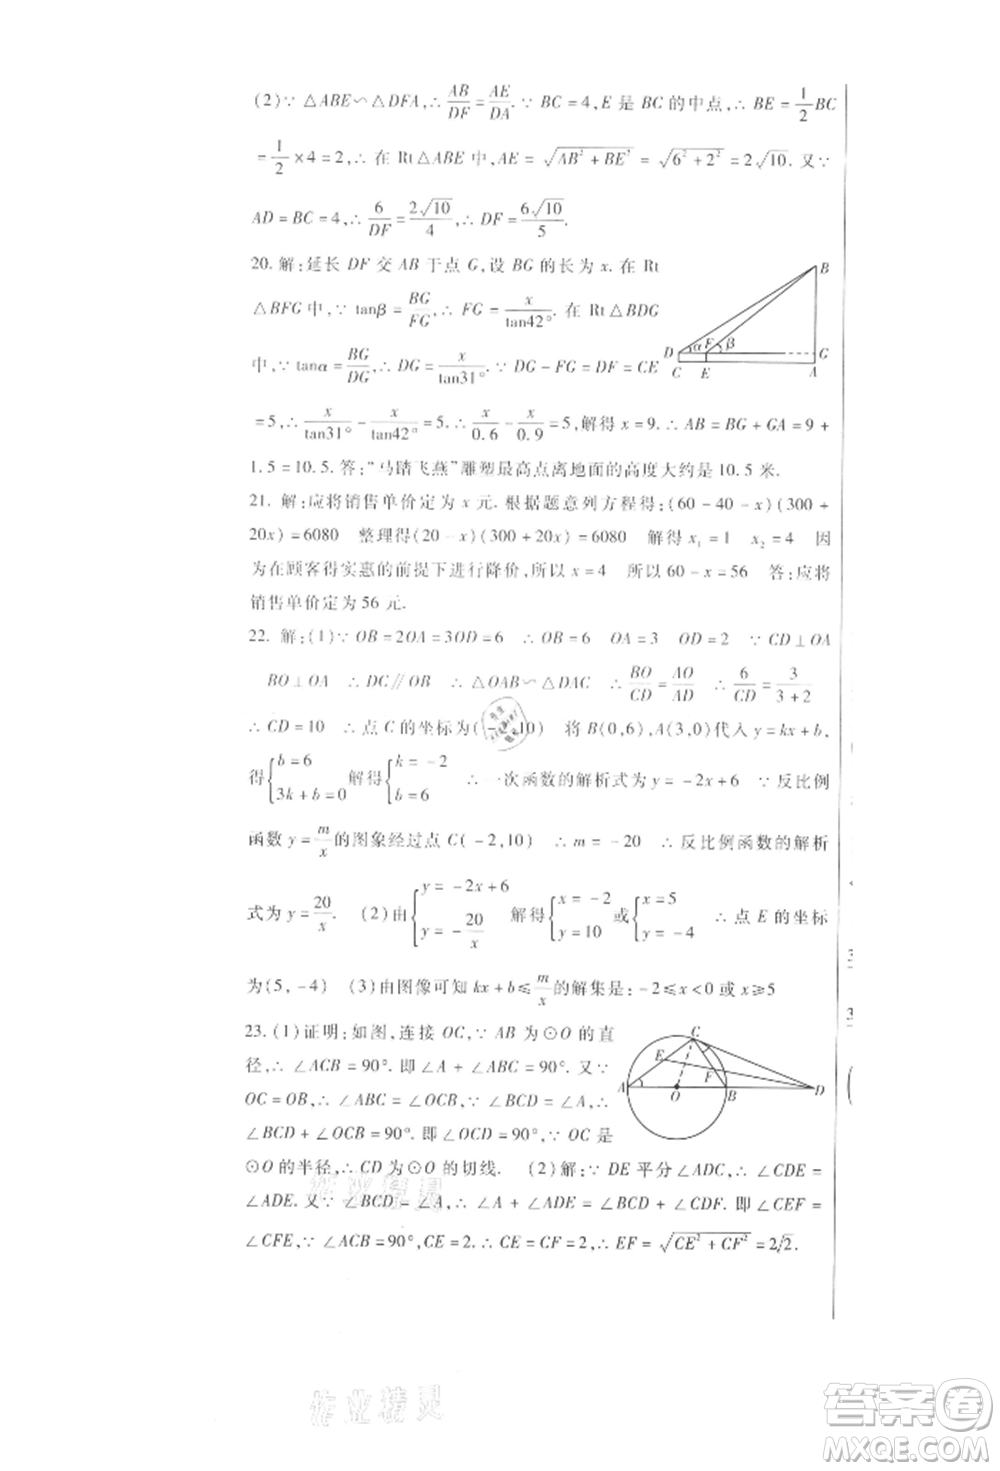 (2)∵ △ABE∽△DFA,∴ AB/DF = AE/DA. ∵ BC = 4, E 是 BC 的中点,∴ BE = 1/2 BC
= 1/2 ×4 = 2,∴ 在 Rt△ABE 中, AE = √(AB² + BE²) = √(6² + 2²) = 2√10. 又∵
AD = BC = 4,∴ 6/DF = 2√10/4,∴ DF = 6√10/5.
20. 解:延长 DF 交 AB 于点 G,设 BG 的长为 x. 在 Rt
△BFG 中,∵ tanβ = BG/FG,∴ FG = x/tan42°. 在 Rt△BDG
中,∵ tanα = BG/DG,∴ DG = x/tan31°. ∵ DG − FG = DF = CE
= 5,∴ x/tan31° − x/tan42° = 5. ∴ x/0.6 − x/0.9 = 5,解得 x = 9. ∴ AB = BG + GA = 9 +
1.5 = 10.5. 答:“马踏飞燕”雕塑最高点离地面的高度大约是 10.5 米.
B
D
α
F
β
G
C
E
A
21. 解:应将销售单价定为 x 元. 根据题意列方程得:(60 − 40 − x)(300 +
20x) = 6080 整理得(20 − x)(300 + 20x) = 6080 解得 x₁ = 1 x₂ = 4 因
为在顾客得实惠的前提下进行降价,所以 x = 4 所以 60 − x = 56 答:应将
销售单价定为 56 元.
22. 解:(1)∵ OB = 2OA = 3OD = 6 ∴ OB = 6 OA = 3 OD = 2 ∵ CD⊥OA
BO⊥OA ∴ DC∥OB ∴ △OAB∽△DAC ∴ BO/CD = AO/AD ∴ 6/CD = 3/(3 + 2)
∴ CD = 10 ∴ 点 C 的坐标为( − 2,10) 将 B(0,6),A(3,0)代入 y = kx + b,
得{b = 6 3k + b = 0 解得{k = − 2 b = 6 ∴ 一次函数的解析式为 y = −2x + 6 ∵ 反比例
函数 y = m/x 的图象经过点 C( − 2,10) ∴ m = − 20 ∴ 反比例函数的解析
式为 y = 20/x. (2)由{y = − 2x + 6 y = − 20/x 解得{x = − 2 y = 10 或{x = 5 y = − 4 ∴ 点 E 的坐标
为(5, − 4) (3)由图像可知 kx + b ≤ m/x 的解集是: − 2 ≤ x < 0 或 x ≥ 5
23. (1)证明:如图,连接 OC,∵ AB 为⊙O 的直
径,∴ ∠ACB = 90°. 即∠A + ∠ABC = 90°. 又∵
OC = OB,∴ ∠ABC = ∠OCB,∵ ∠BCD = ∠A,∴
∠BCD + ∠OCB = 90°. 即∠OCD = 90°,∵ OC 是
⊙O 的半径,∴ CD 为⊙O 的切线. (2)解:∵ DE 平分∠ADC,∴ ∠CDE =
∠ADE. 又∵ ∠BCD = ∠A,∴ ∠A + ∠ADE = ∠BCD + ∠CDF. 即∠CEF =
∠CFE,∵ ∠ACB = 90°,CE = 2. ∴ CE = CF = 2,∴ EF = √(CE² + CF²) = 2√2.
C
E
F
A
O
B
D
作业精灵
作业精灵
答案卷
MXQE.COM